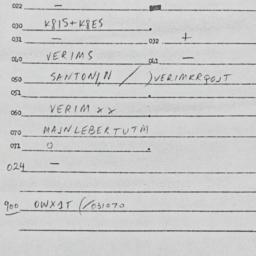 022 —
030 K8IS+K8ES
031 — 032 +
040 VERIMS 041 —
050 SANTONIN / )VERIMKRQOJT
051
060 VERIM xx
070 MAJNLEBERTUTM
071 0
024 —
900 OWX1T (/031070